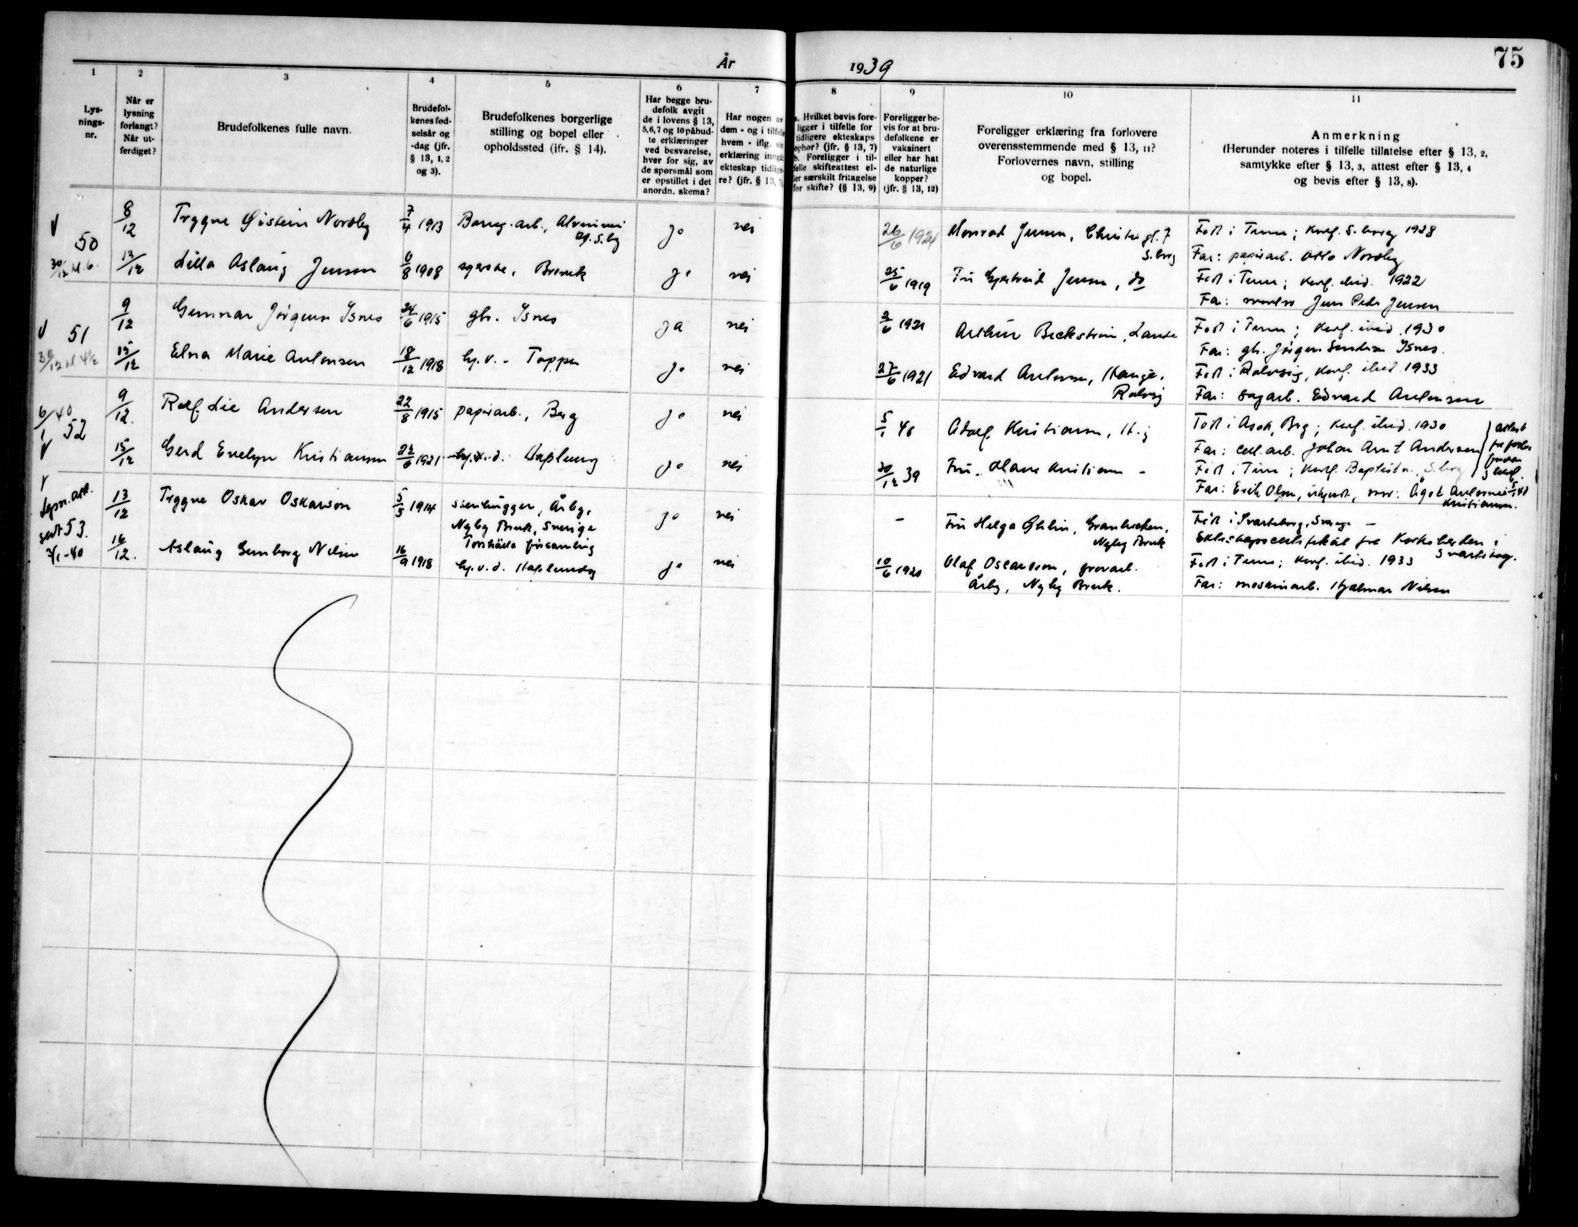 År 1939
75
1
Lys-
nings-
nr.
2
Når er
lysning
forlangt?
Når ut-
ferdiget?
3
Brudefolkenes fulle navn.
4
Brudefol-
kenes fød-
selsår og
-dag (jfr.
§ 13, 1, 2
og 3).
5
Brudefolkenes borgerlige
stilling og bopel eller
opholdssted (ifr. § 14).
6
Har begge bru-
defolk avgit
de i lovens § 13,
5, 6, 7 og 10 påbud-
te erklæringer
ved besvarelse,
hver for sig, av
de spørsmål som
er opstillet i det
anordn. skema?
7
Har nogen av
dem - og i tilfelle
hvem - iflg. sin
erklæring inngått
ekteskap tidlige-
re? (jfr. § 13,
8
Hvilket bevis fore-
ligger i tilfelle for
tidligere ekteskaps
ophør? (jfr. § 13, 7)
b. Foreligger i til-
felle skifteattest el-
ler særskilt fritagelse
for skifte? (§ 13, 9)
9
Foreligger be-
vis for at bru-
defolkene er
vaksinert
eller har hat
de naturlige
kopper?
(jfr. § 13, 12)
10
Foreligger erklæring fra forlovere
overensstemmende med § 13, 11?
Forlovernes navn, stilling
og bopel.
11
Anmerkning
(Herunder noteres i tilfelle tillatelse efter § 13, 2,
samtykke efter § 13, 3, attest efter § 13, 4
og bevis efter § 13, 8).
50
8/12 Trygve Øistein Nordby 7/4 1913 ja nei 26/6 1921 Monrad Jensen, Født i Tune; konf. S.borg 1928
Far: papirarb. Otto Nordby
13/12 Lilla Aslaug Jensen 6/8 1908 ja nei 25/6 1919 Fru Jensen, do Født i Tune; konf. ibid. 1922
Far: Jens Peder Jensen
51
9/12 Gunnar Jørgen Isnes 24/6 1915 gbr. Isnes ja nei 2/6 1921 Arthur Beckstrøm, Lande Født i Tune; konf. ibid. 1930
Far: gbr. Jørgen Isnes.
15/12 Elna Marie Antonsen 18/12 1918 hj.v. - Toppen ja nei 27/6 1921 Edvard Antonsen, Hauge, Rolvsøy Født i Rolvsøy, konf. ibid 1933
Far: sagarb. Edvard Antonsen
6/1 40
52
9/12. Rolf Lie Andersen 22/8 1915 papirarb., Berg ja nei 5/1 40 Adolf Kristiansen, Født i Asak, Berg; konf. ibid. 1930
Far: cell.arb. Johan Arnt Andersen
15/12 Gerd Evelyn Kristiansen 22/6 1921 Haslund ja nei 20/12 39 Fru Kristiansen - Født i Tune;
Far: Erik Olsen, mor: Ågot Antonie Kristiansen.
53.
13/12 Trygve Oskar Oskarson 5/5 1914 stenhugger, Årby,
Nyby Bruk, Sverige
Torshälla församling ja nei - Fru Helga Öhlin, Granbacken,
Nyby Bruk Født i Svarteborg, Sverige -
16/12. Aslaug Gunborg Nilsen 16/9 1918 hj.v.d. Haslundøy ja nei 10/6 1920 Olaf Oscarsson, grovarb.
Årby, Nyby Bruk. Født i Tune; konf. ibid. 1933
Far: Hjalmar Nilsen